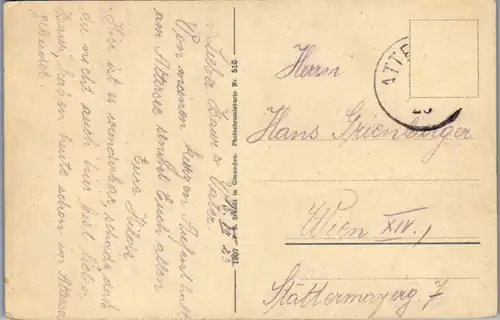 Lieber Hans u. Vater
Von meinen kurzen Aufenthalt
am Attersee sendet Euch allen
Eure Hilde
Hier ist es wunderbar, schade daß
du nicht auch hier bist lieber
haben heute schon im Attersee
gebadet.
1907 Gmunden. Photochromiekarte Nr. 516
ATTE
Herrn
Hans Grienberger
Wien XIV.,
Stättermayerg. 7